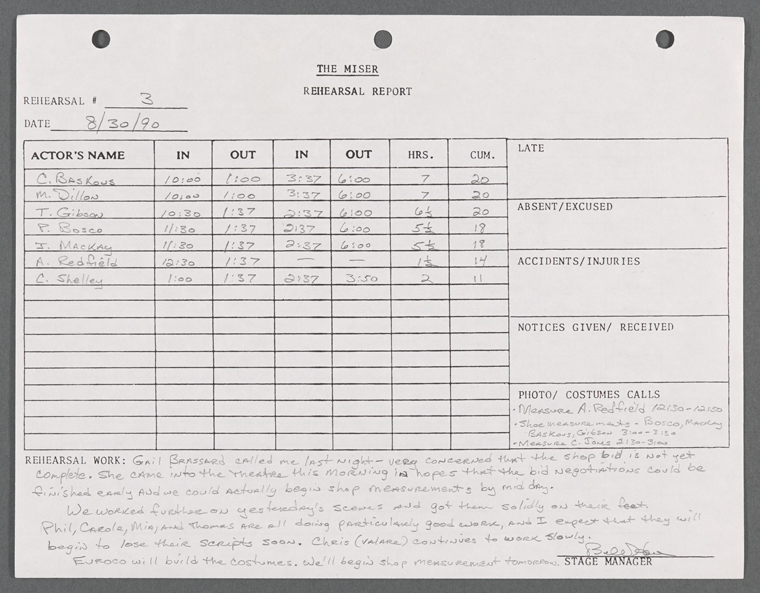 THE MISER
REHEARSAL REPORT
REHEARSAL # 3
DATE 8/30/90
ACTOR'S NAME IN OUT IN OUT HRS. CUM.
C. Baskous 10:00 1:00 3:37 6:00 7 20
M. Dillon 10:00 1:00 3:37 6:00 7 20
T. Gibson 10:30 1:37 2:37 6:00 6½ 20
P. Bosco 11:30 1:37 2:37 6:00 5½ 18
I. Mackay 11:30 1:37 2:37 6:00 5½ 18
A. Redfield 12:30 1:37 — — 1½ 14
C. Shelley 1:00 1:37 2:37 3:50 2 11
LATE
ABSENT/EXCUSED
ACCIDENTS/INJURIES
NOTICES GIVEN/ RECEIVED
PHOTO/ COSTUMES CALLS
• Measure A. Redfield 12:30-12:50
• Shoe measurements - Bosco, Mackay
Baskous, Gibson 3:00-3:30
• Measure C. Jones 2:30-3:00
REHEARSAL WORK: Gail Brassard called me last night - very concerned that the shop bid is not yet
complete. She came into the theatre this morning in hopes that the bid negotiations could be
finished early and we could actually begin shop measurements by mid day.
We worked further on yesterday's scenes and got them solidly on their feet.
Phil, Carole, Mia, and Thomas are all doing particularly good work, and I expect that they will
begin to lose their scripts soon. Chris (Valare) continues to work slowly.
Euroco will build the costumes. We'll begin shop measurement tomorrow.
STAGE MANAGER